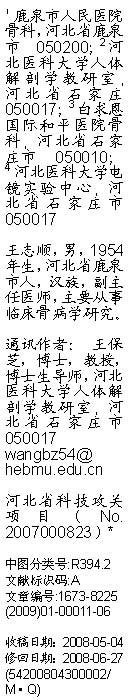 1 鹿泉市人民医院
骨科,河北省鹿泉
市 050200; 2河
北医科大学人体
解剖学教研室,
河北省石家庄
050017; 3白求恩
国际和平医院骨
科, 河北省石家
庄市 050010;
4河北医科大学电
镜实验中心,河北
省石家庄市
050017
王志顺,男,1954
年生,河北省鹿泉
市人,汉族,副主
任医师,主要从事
临床骨病学研究。
通讯作者: 王保
芝,博士,教授,
博士生导师,河北
医科大学人体解
剖学教研室,河
北省石家庄市
050017
wangbz54@
hebmu.edu.cn
河北省科技攻关
项目(No.
2007000823)*
中图分类号:R394.2
文献标识码:A
文章编号:1673-8225
(2009)01-00011-06
收稿日期: 2008-05-04
修回日期: 2008-06-27
(54200804300002/
M·Q)